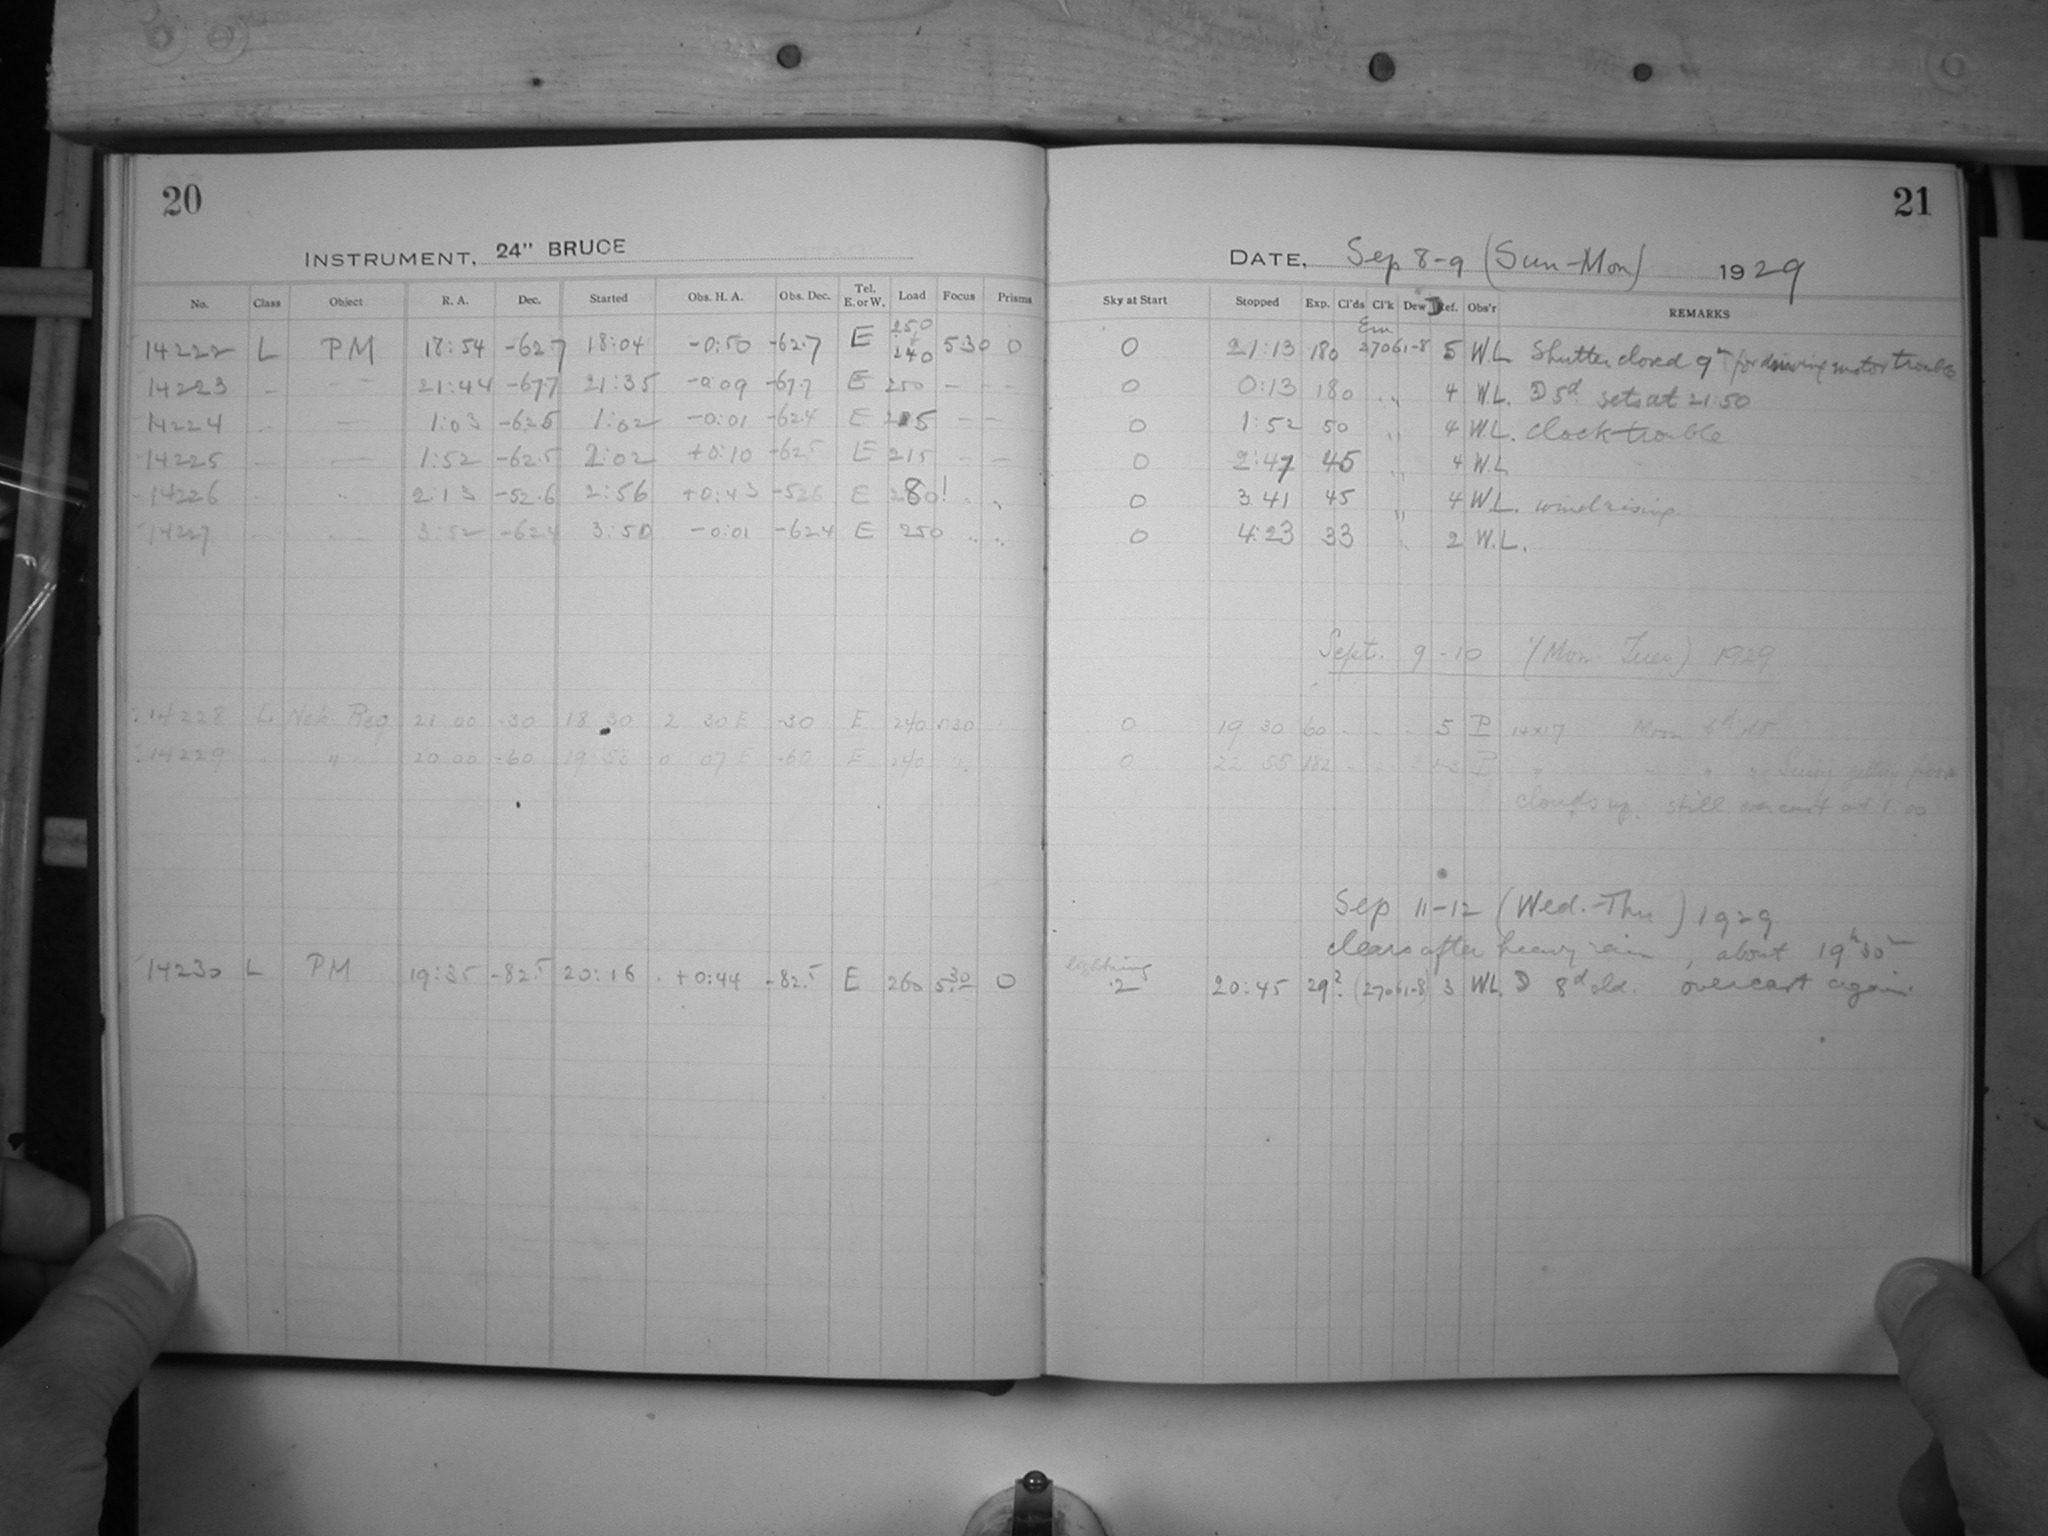 20
INSTRUMENT, 24" BRUCE
No. Class Object R. A. Dec. Started Obs. H. A. Obs. Dec. Tel. E. or W. Load Focus Prisms
14222 L PM 18:54 -62.7 18:04 -0:50 -62.7 E 250 240 530 0
14223 21:44 -67.7 21:35 -0:09 -67.7 E 250
14224 1:03 -62.5 1:02 -0:01 -62.4 E
14225 1:52 -62.5 2:02 +0:10 -62.5 E 215
14226 2:13 -52.6 2:56 +0:43 -52.6 E 280!
14227 3:52 -62.4 3:50 -0:01 -62.4 E 250
14228 L Neb. Reg 21 00 -30 18 30 2 30 E -30 E 240 530
14229 " 20 00 -60 19 53 0 07 E -60 E 240 "
14230 L PM 19:35 -82.5 20:16 +0:44 -82.5 E 260 530 0
21
DATE, Sep 8-9 (Sun-Mon) 1929
Sky at Start Stopped Exp. Cl'ds Cl'k Dew Ref. Obs'r REMARKS
Em
0 21:13 180 27061-8 5 W.L. Shutter closed 9m for driving motor trouble
0 0:13 180 " 4 W.L. D 5d sets at 21:50
0 1:52 50 " 4 W.L. clock trouble
0 2:47 45 " 4 W.L.
0 3 41 45 " 4 W.L. wind rising
0 4:23 33 " 2 W.L.
Sept. 9-10 (Mon-Tues) 1929
0 19 30 60 - - - 5 P 14x17 Moon 6d
0 22 55 182 P " " " Seeing getting poor
clouds up. still overcast at
Sep 11-12 (Wed.-Thu) 1929
clears after heavy rain, about 19h30m
lightning
2 20:45 29? (27061-8) 3 W.L. D 8d old. overcast again